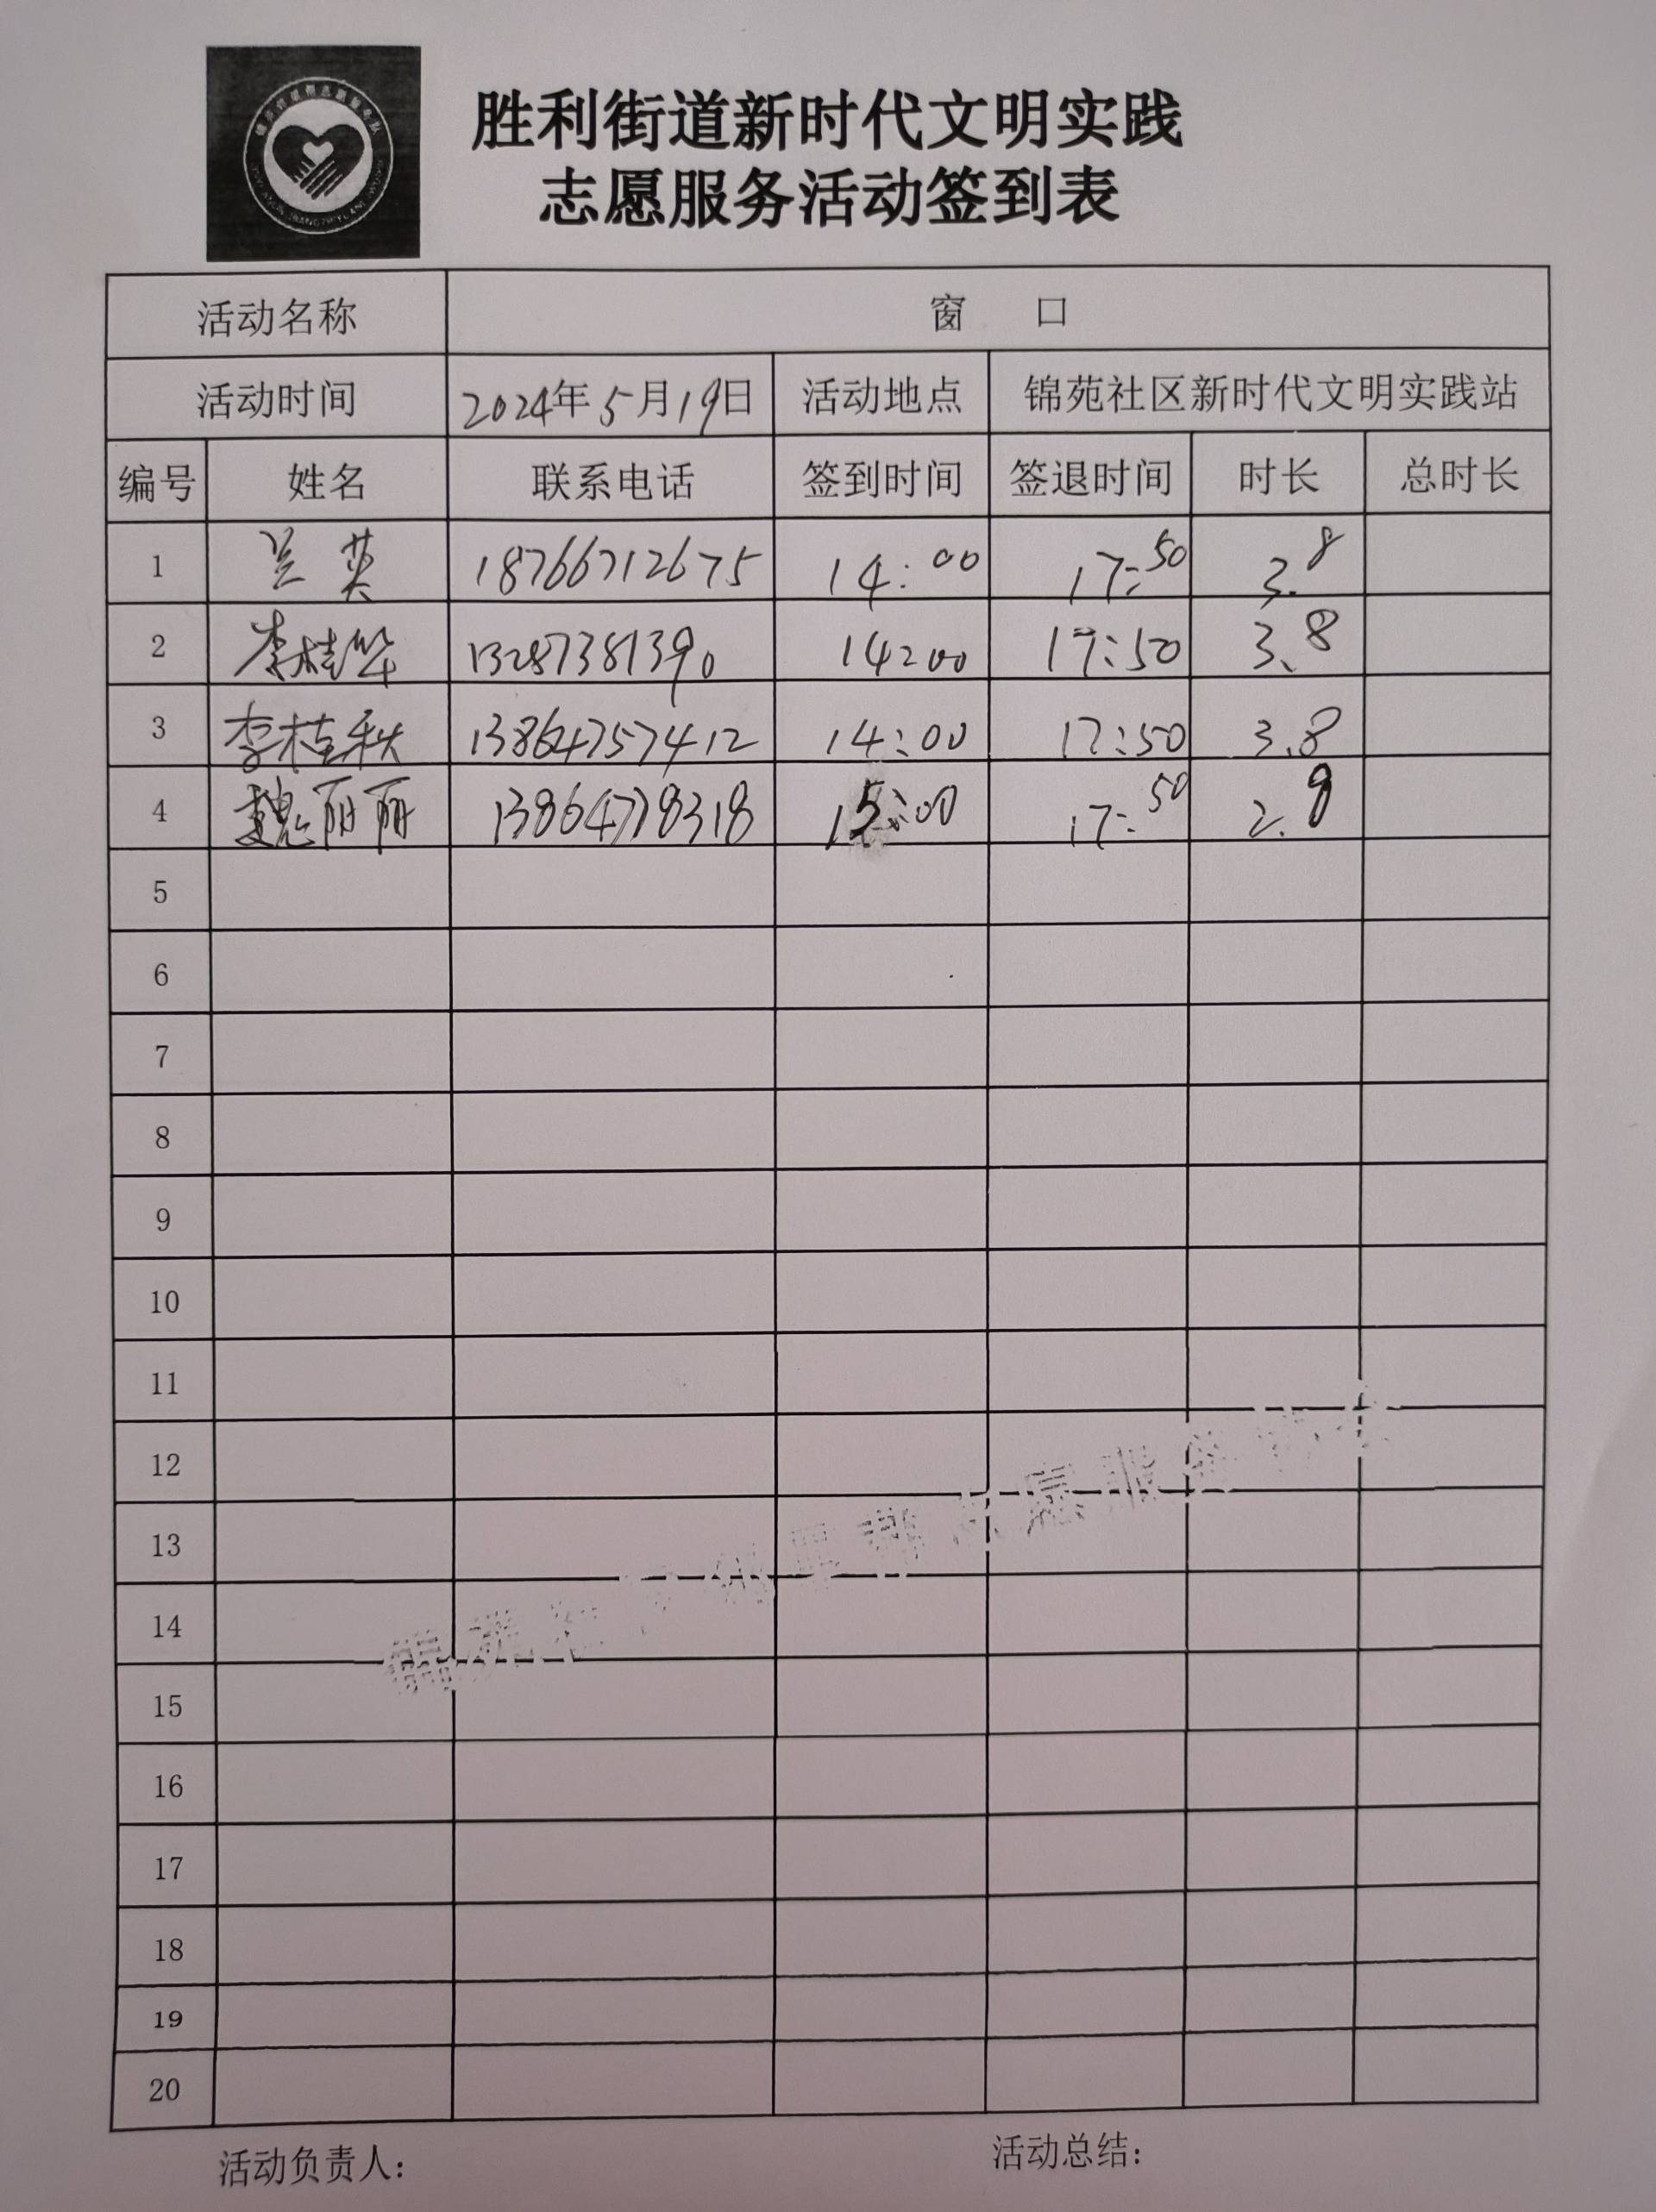 胜利街道新时代文明实践
志愿服务活动签到表
活动名称 窗 口
活动时间 2024年5月19日 活动地点 锦苑社区新时代文明实践站
编号 姓名 联系电话 签到时间 签退时间 时长 总时长
1 兰英 18766712675 14:00 17:50 3.8
2 李桂华 13287381390 14:00 17:50 3.8
3 李桂秋 13864757412 14:00 17:50 3.8
4 魏丽丽 13864778318 15:00 17:50 2.8
5
6
7
8
9
10
11
12
13
14
15
16
17
18
19
20
活动负责人: 活动总结: